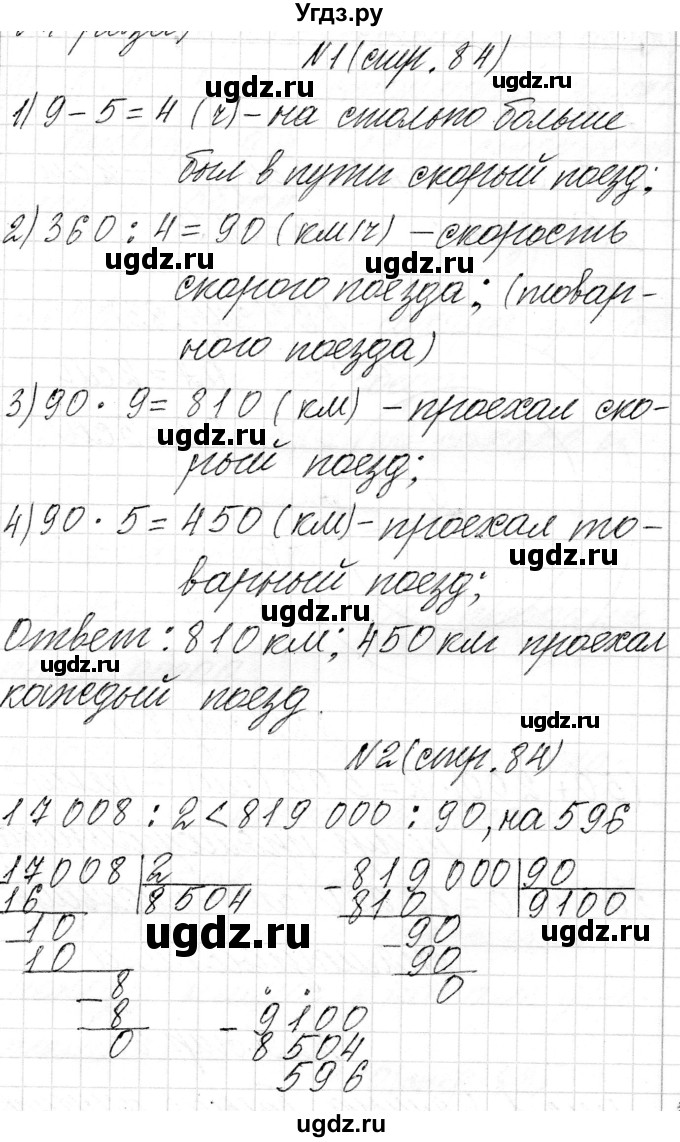 Угдз.ру
№1 (стр. 84)
ugdz.ru ugdz.ru
1) 9 - 5 = 4 (ч) - на столько больше
был в пути скорый поезд;
2) 360 : 4 = 90 (км/ч) - скорость
ugdz.ru ugdz.ru
скорого поезда; (товар-
ного поезда)
3) 90 · 9 = 810 (км) - проехал ско-
ugdz.ru
рый поезд;
4) 90 · 5 = 450 (км) - проехал то-
ugdz.ru
варный поезд;
ugdz.ru
Ответ: 810 км; 450 км проехал
ugdz.ru
каждый поезд.
ugdz.ru
№2 (стр. 84)
17008 : 2 < 819 000 : 90, на 596
17008 2 - 819 000 90
16 8504 810 9100
- 10 - 90
ugdz.ru ugdz.ru
10 90
- 8 0
8 - 9100
0 8504
596
ugdz.ru
ugdz.ru